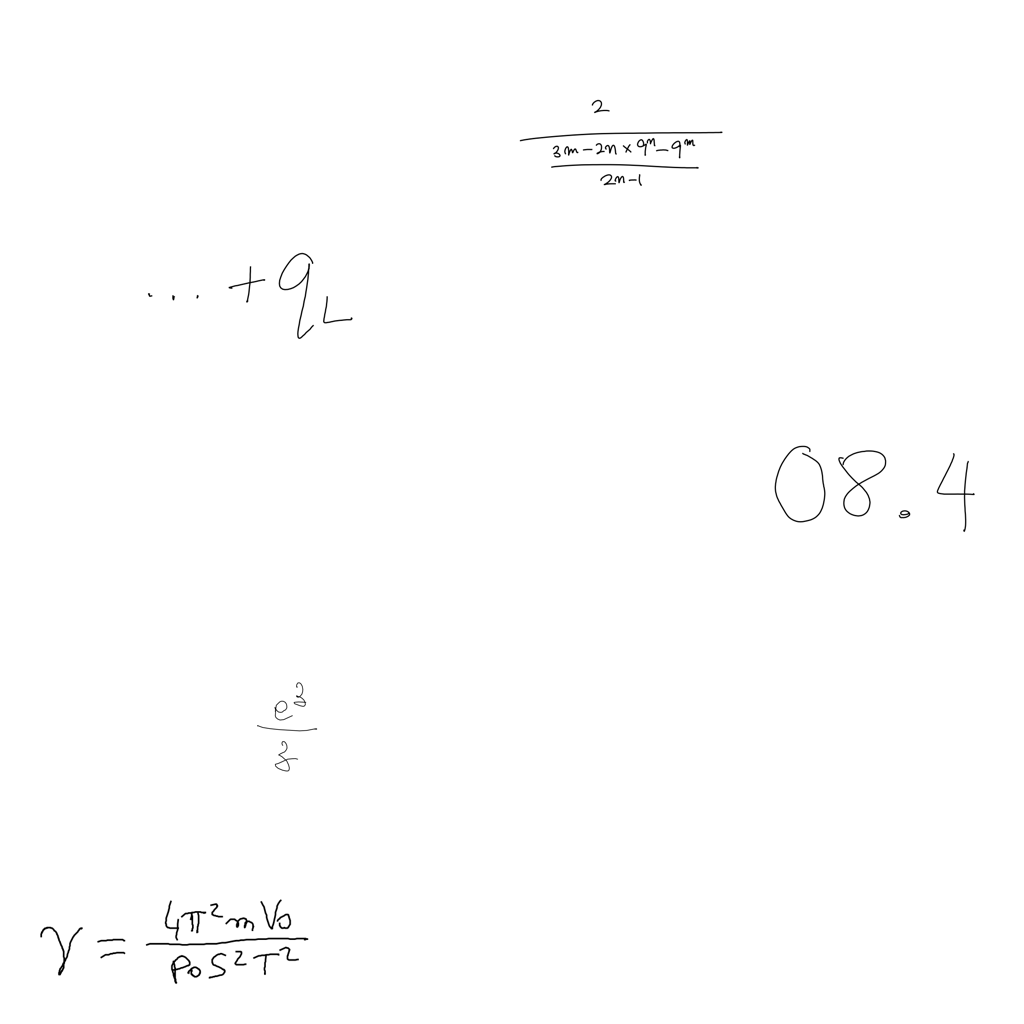 \frac{2}{\frac{3m-2n \times 9^n - 9^m}{2n-1}}
\ldots + q_L
08.4
\frac{e^z}{z}
\gamma = \frac{4\pi^2 m V_0}{P_0 S^2 T^2}